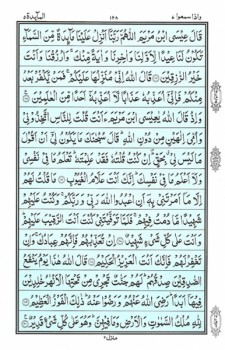 المآئدة ٥
١٢٨
واذا سمعوا ٧
قَالَ عِيْسَى ابْنُ مَرْيَمَ اللّٰهُمَّ رَبَّنَآ اَنْزِلْ عَلَيْنَا مَآئِدَةً مِّنَ السَّمَآءِ
تَكُوْنُ لَنَا عِيْدًا لِّاَوَّلِنَا وَاٰخِرِنَا وَاٰيَةً مِّنْكَ ۚ وَارْزُقْنَا وَاَنْتَ
خَيْرُ الرّٰزِقِيْنَ ۝ قَالَ اللّٰهُ اِنِّيْ مُنَزِّلُهَا عَلَيْكُمْ ۚ فَمَنْ يَّكْفُرْ بَعْدُ
مِنْكُمْ فَاِنِّيْٓ اُعَذِّبُهٗ عَذَابًا لَّآ اُعَذِّبُهٗٓ اَحَدًا مِّنَ الْعٰلَمِيْنَ ۝
وَاِذْ قَالَ اللّٰهُ يٰعِيْسَى ابْنَ مَرْيَمَ ءَاَنْتَ قُلْتَ لِلنَّاسِ اتَّخِذُوْنِيْ
وَاُمِّيَ اِلٰهَيْنِ مِنْ دُوْنِ اللّٰهِ ۭ قَالَ سُبْحٰنَكَ مَا يَكُوْنُ لِيْٓ اَنْ اَقُوْلَ
مَا لَيْسَ لِيْ ۤ بِحَقٍّ ڲ اِنْ كُنْتُ قُلْتُهٗ فَقَدْ عَلِمْتَهٗ ۭ تَعْلَمُ مَا فِيْ نَفْسِيْ
وَلَآ اَعْلَمُ مَا فِيْ نَفْسِكَ ۭ اِنَّكَ اَنْتَ عَلَّامُ الْغُيُوْبِ ۝ مَا قُلْتُ لَهُمْ
اِلَّا مَآ اَمَرْتَنِيْ بِهٖٓ اَنِ اعْبُدُوا اللّٰهَ رَبِّيْ وَرَبَّكُمْ ۚ وَكُنْتُ عَلَيْهِمْ
شَهِيْدًا مَّا دُمْتُ فِيْهِمْ ۚ فَلَمَّا تَوَفَّيْتَنِيْ كُنْتَ اَنْتَ الرَّقِيْبَ عَلَيْهِمْ
وَاَنْتَ عَلٰي كُلِّ شَيْءٍ شَهِيْدٌ ۝ اِنْ تُعَذِّبْهُمْ فَاِنَّهُمْ عِبَادُكَ ۚ وَاِنْ
تَغْفِرْ لَهُمْ فَاِنَّكَ اَنْتَ الْعَزِيْزُ الْحَكِيْمُ ۝ قَالَ اللّٰهُ هٰذَا يَوْمُ يَنْفَعُ
الصّٰدِقِيْنَ صِدْقُهُمْ ۭ لَهُمْ جَنّٰتٌ تَجْرِيْ مِنْ تَحْتِهَا الْاَنْهٰرُ خٰلِدِيْنَ
فِيْهَآ اَبَدًا ۭ رَضِيَ اللّٰهُ عَنْهُمْ وَرَضُوْا عَنْهُ ۭ ذٰلِكَ الْفَوْزُ الْعَظِيْمُ ۝
لِلّٰهِ مُلْكُ السَّمٰوٰتِ وَالْاَرْضِ وَمَا فِيْهِنَّ ۭ وَهُوَ عَلٰي كُلِّ شَيْءٍ قَدِيْرٌ ۝
منزل ٢